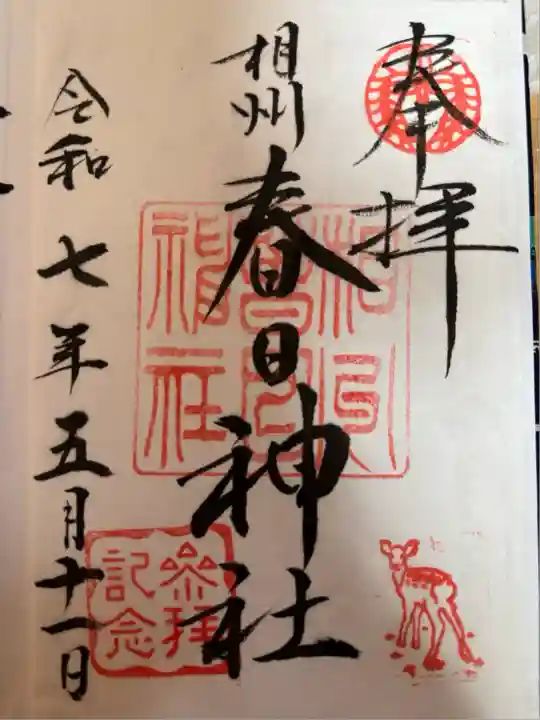 奉拝
相州
春日神社
令和七年五月十一日
相州春日神社
参拝記念